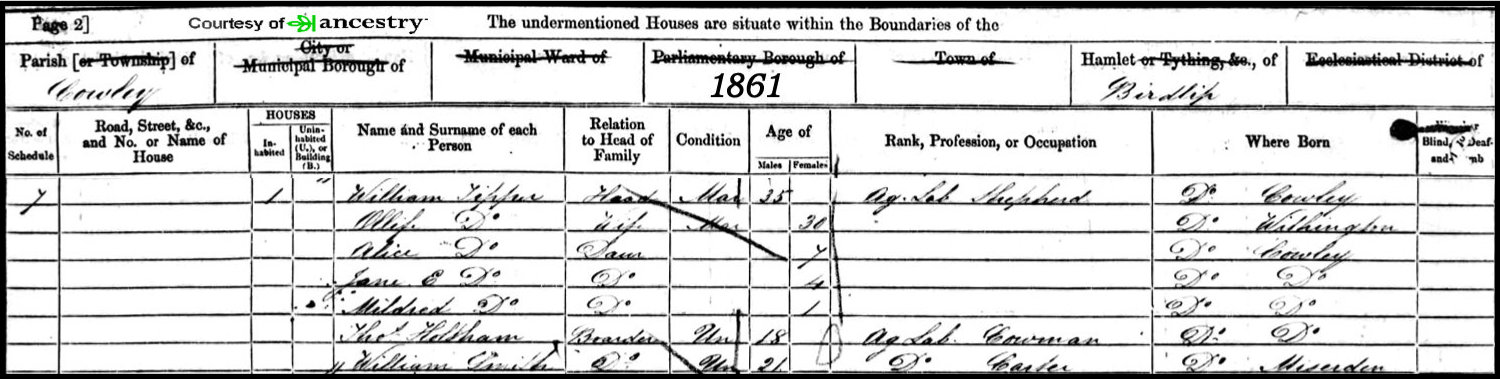 Page 2] Courtesy of ancestry The undermentioned Houses are situate within the Boundaries of the
Parish [or Township] of City or Municipal Borough of Municipal Ward of Parliamentary Borough of Town of Hamlet or Tything, &c., of Ecclesiastical District of
Cowley 1861 Birdlip
No. of Schedule Road, Street, &c., and No. or Name of House HOUSES Inhabited Uninhabited (U.), or Building (B.) Name and Surname of each Person Relation to Head of Family Condition Age of Males Females Rank, Profession, or Occupation Where Born Blind, Deaf-and-
7 1 William Tipper Head Mar 35 Ag. Lab Shepherd Do Cowley
Do Wife Mar 30 Do Withington
Alice Do Daur 7 Do Cowley
Jane E Do Do 4 Do Do
Mildred Do Do 1 Do Do
Thos Holtham Boarder Un 18 Ag Lab. Cowman Do Do
William Smith Do Un 21 Do Carter Do Miserden